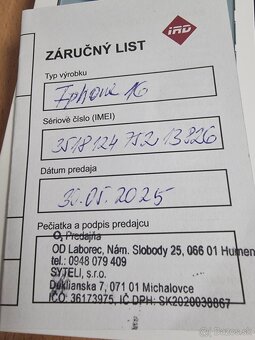 IRD
ZÁRUČNÝ LIST
Typ výrobku
Iphone 16
Sériové číslo (IMEI)
351812475213826
Dátum predaja
30.05.2025
Pečiatka a podpis predajcu
O₂ Predajňa
OD Laborec, Nám. Slobody 25, 066 01 Humen
tel.: 0948 079 409
SYTELI, s.r.o.
Duklianska 7, 071 01 Michalovce
IČO: 36173975, IČ DPH: SK2020038867